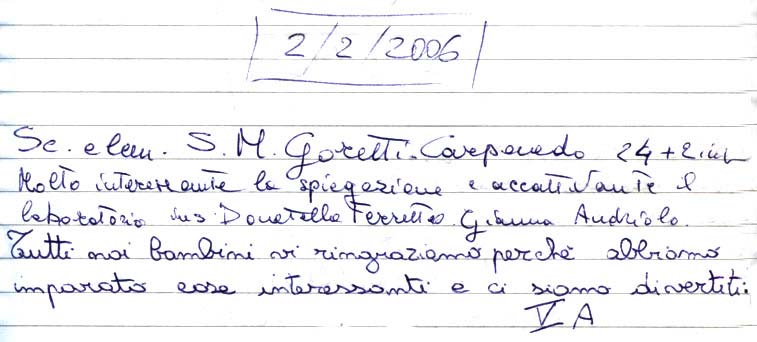 2/2/2006
Sc. elem. S. M. Goretti. Carpenedo 24 + 2 ins
Molto interessante la spiegazione e accattivante il
laboratorio ins Donatella Ferretto. Gianna Andriolo.
Tutti noi bambini vi ringraziamo perchè abbiamo
imparato cose interessanti e ci siamo divertiti.
V A